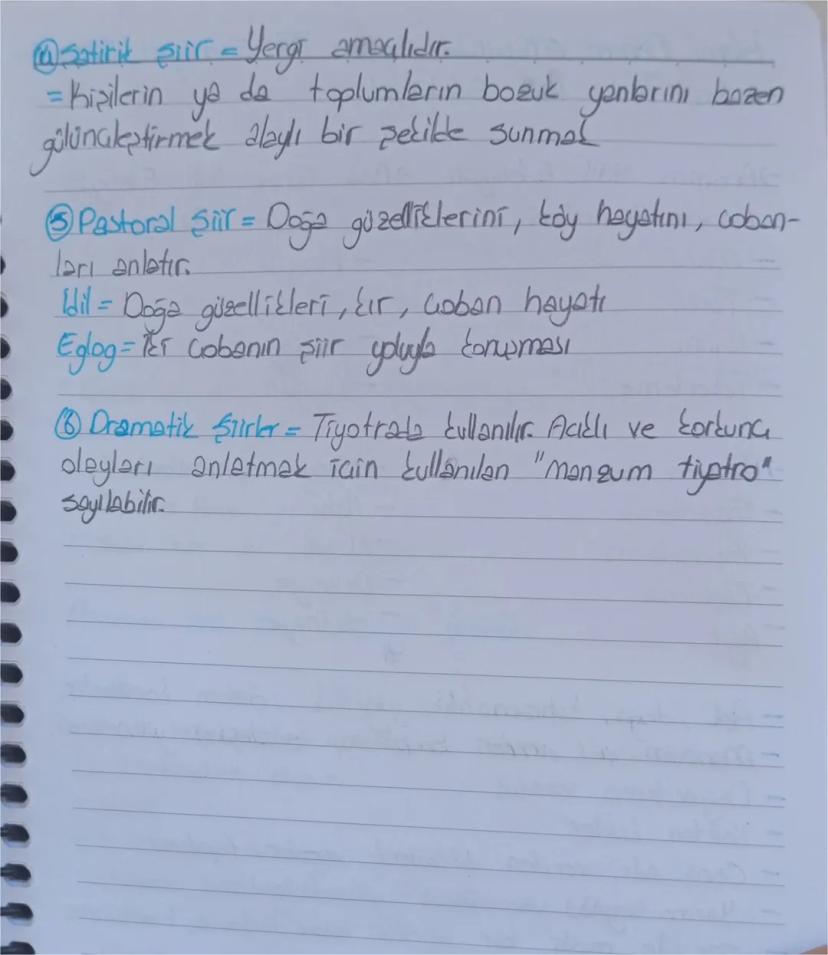 ④ Satirik Şiir = Yergi amaçlıdır.
= Kişilerin ya da toplumların bozuk yanlarını bazen
gülünçleştirmek alaylı bir şekilde sunmak
⑤ Pastoral Şiir = Doğa güzelliklerini, köy hayatını, çoban-
ları anlatır.
İdil = Doğa güzellikleri, kır, çoban hayatı
Eglog = İki çobanın şiir yoluyla konuşması
⑥ Dramatik Şiirler = Tiyotrada kullanılır. Acıklı ve korkunç
olayları anlatmak için kullanılan "manzum tiyatro"
sayılabilir.